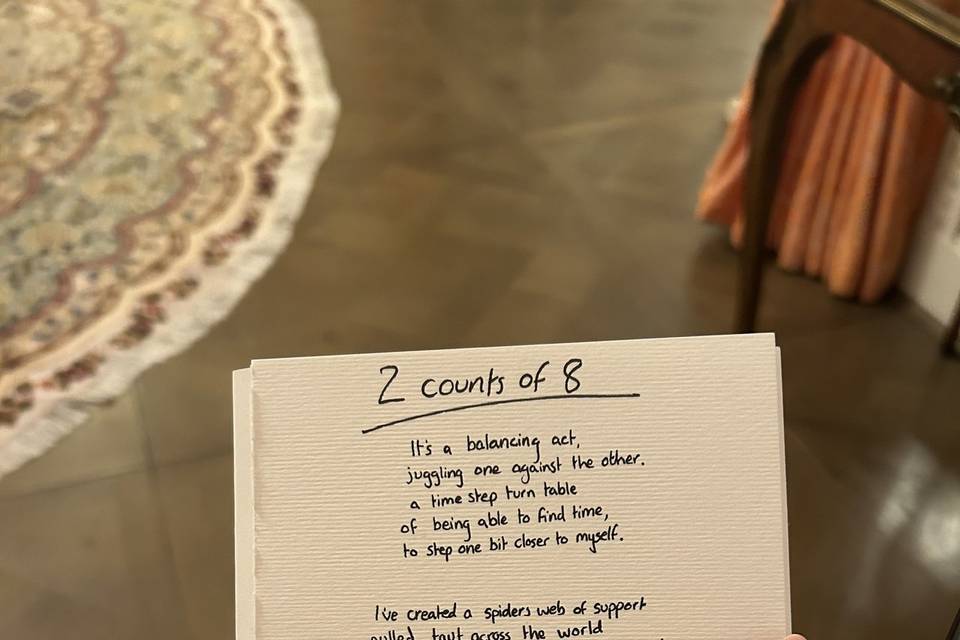 2 counts of 8
It's a balancing act,
juggling one against the other.
a time step turn table
of being able to find time,
to step one bit closer to myself.
I've created a spiders web of support
pulled taut across the world